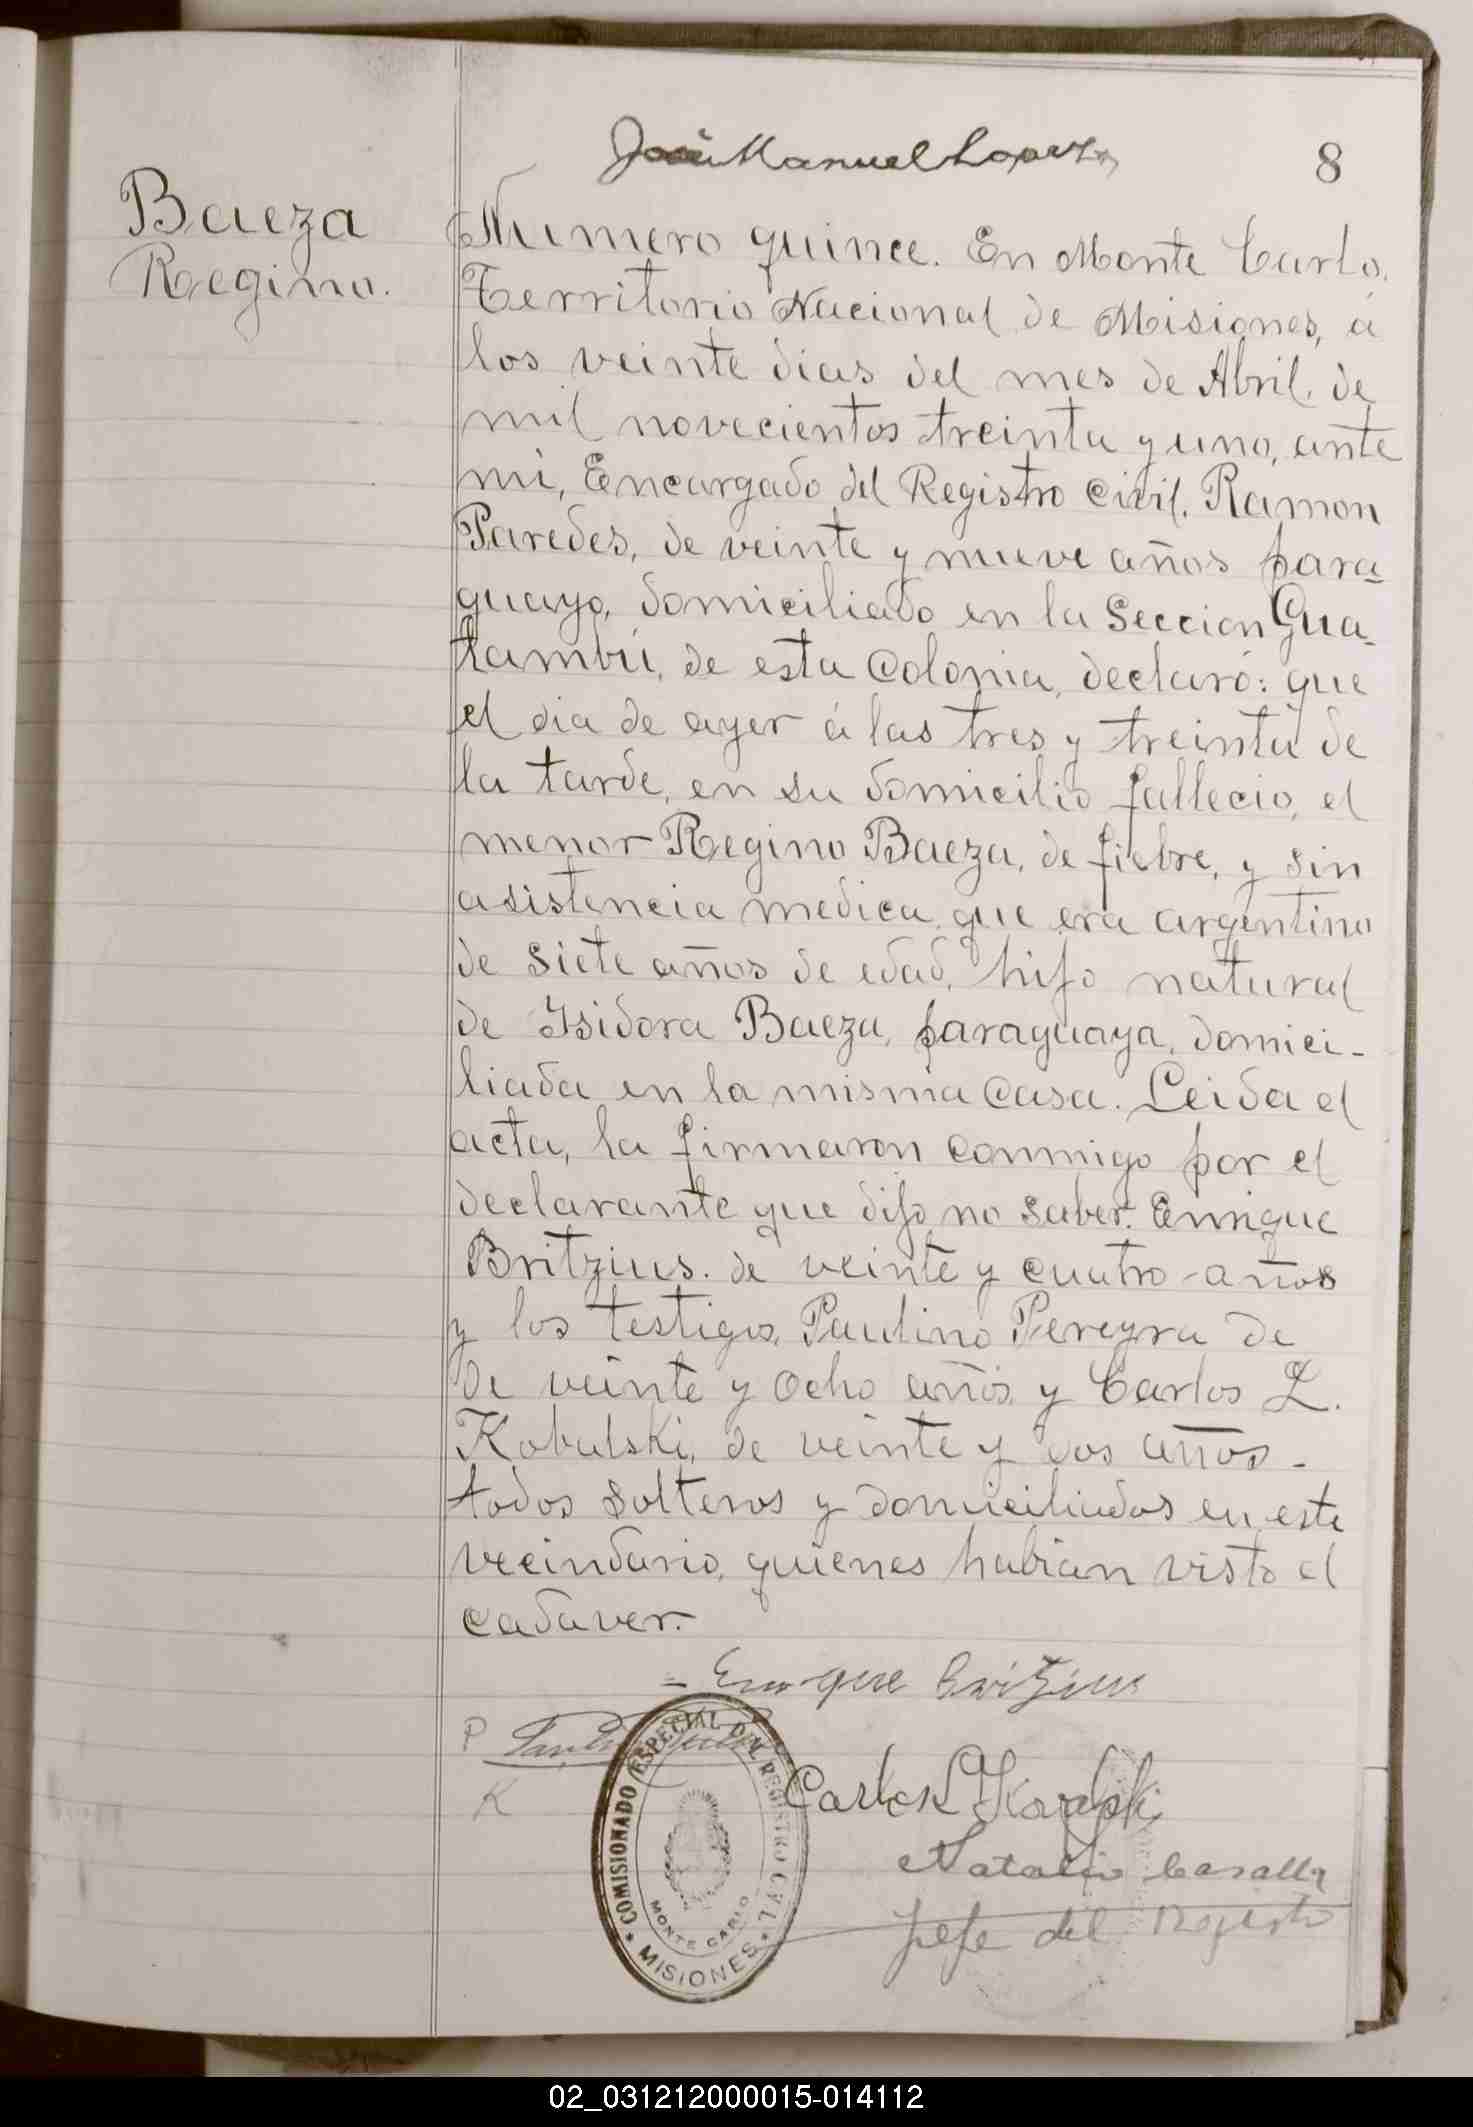 José Manuel Lopez
8
Baeza
Regino.
Numero quince. En Monte Carlo,
Territorio Nacional de Misiones, á
los veinte dias del mes de Abril de
mil novecientos treinta y uno, ante
mi, Encargado del Registro Civil, Ramon
Paredes, de veinte y nueve años para-
guayo, domiciliado en la Seccion Gua-
tambú, de esta Colonia, declaró: que
el dia de ayer á las tres y treinta de
la tarde, en su domicilio fallecio, el
menor Regino Baeza, de fiebre, y sin
asistencia medica, que era argentino
de siete años de edad, hijo natural
de Isidora Baeza, paraguaya, domici-
liada en la misma Casa. Leida el
acta, la firmaron conmigo por el
declarante que dijo no saber. Enrique
Britzius. de veinte y cuatro años
y los testigos, Paulino Pereyra de
de veinte y ocho años, y Carlos L.
Kobulski, de veinte y dos años -
todos solteros y domiciliados en este
vecindario, quienes habian visto el
cadaver.
= Enrique Britzius
P
K
COMISIONADO ESPECIAL DEL REGISTRO CIVIL
MONTE CARLO
* MISIONES *
Carlos
Natalio
Jefe del Registro
02_031212000015-014112